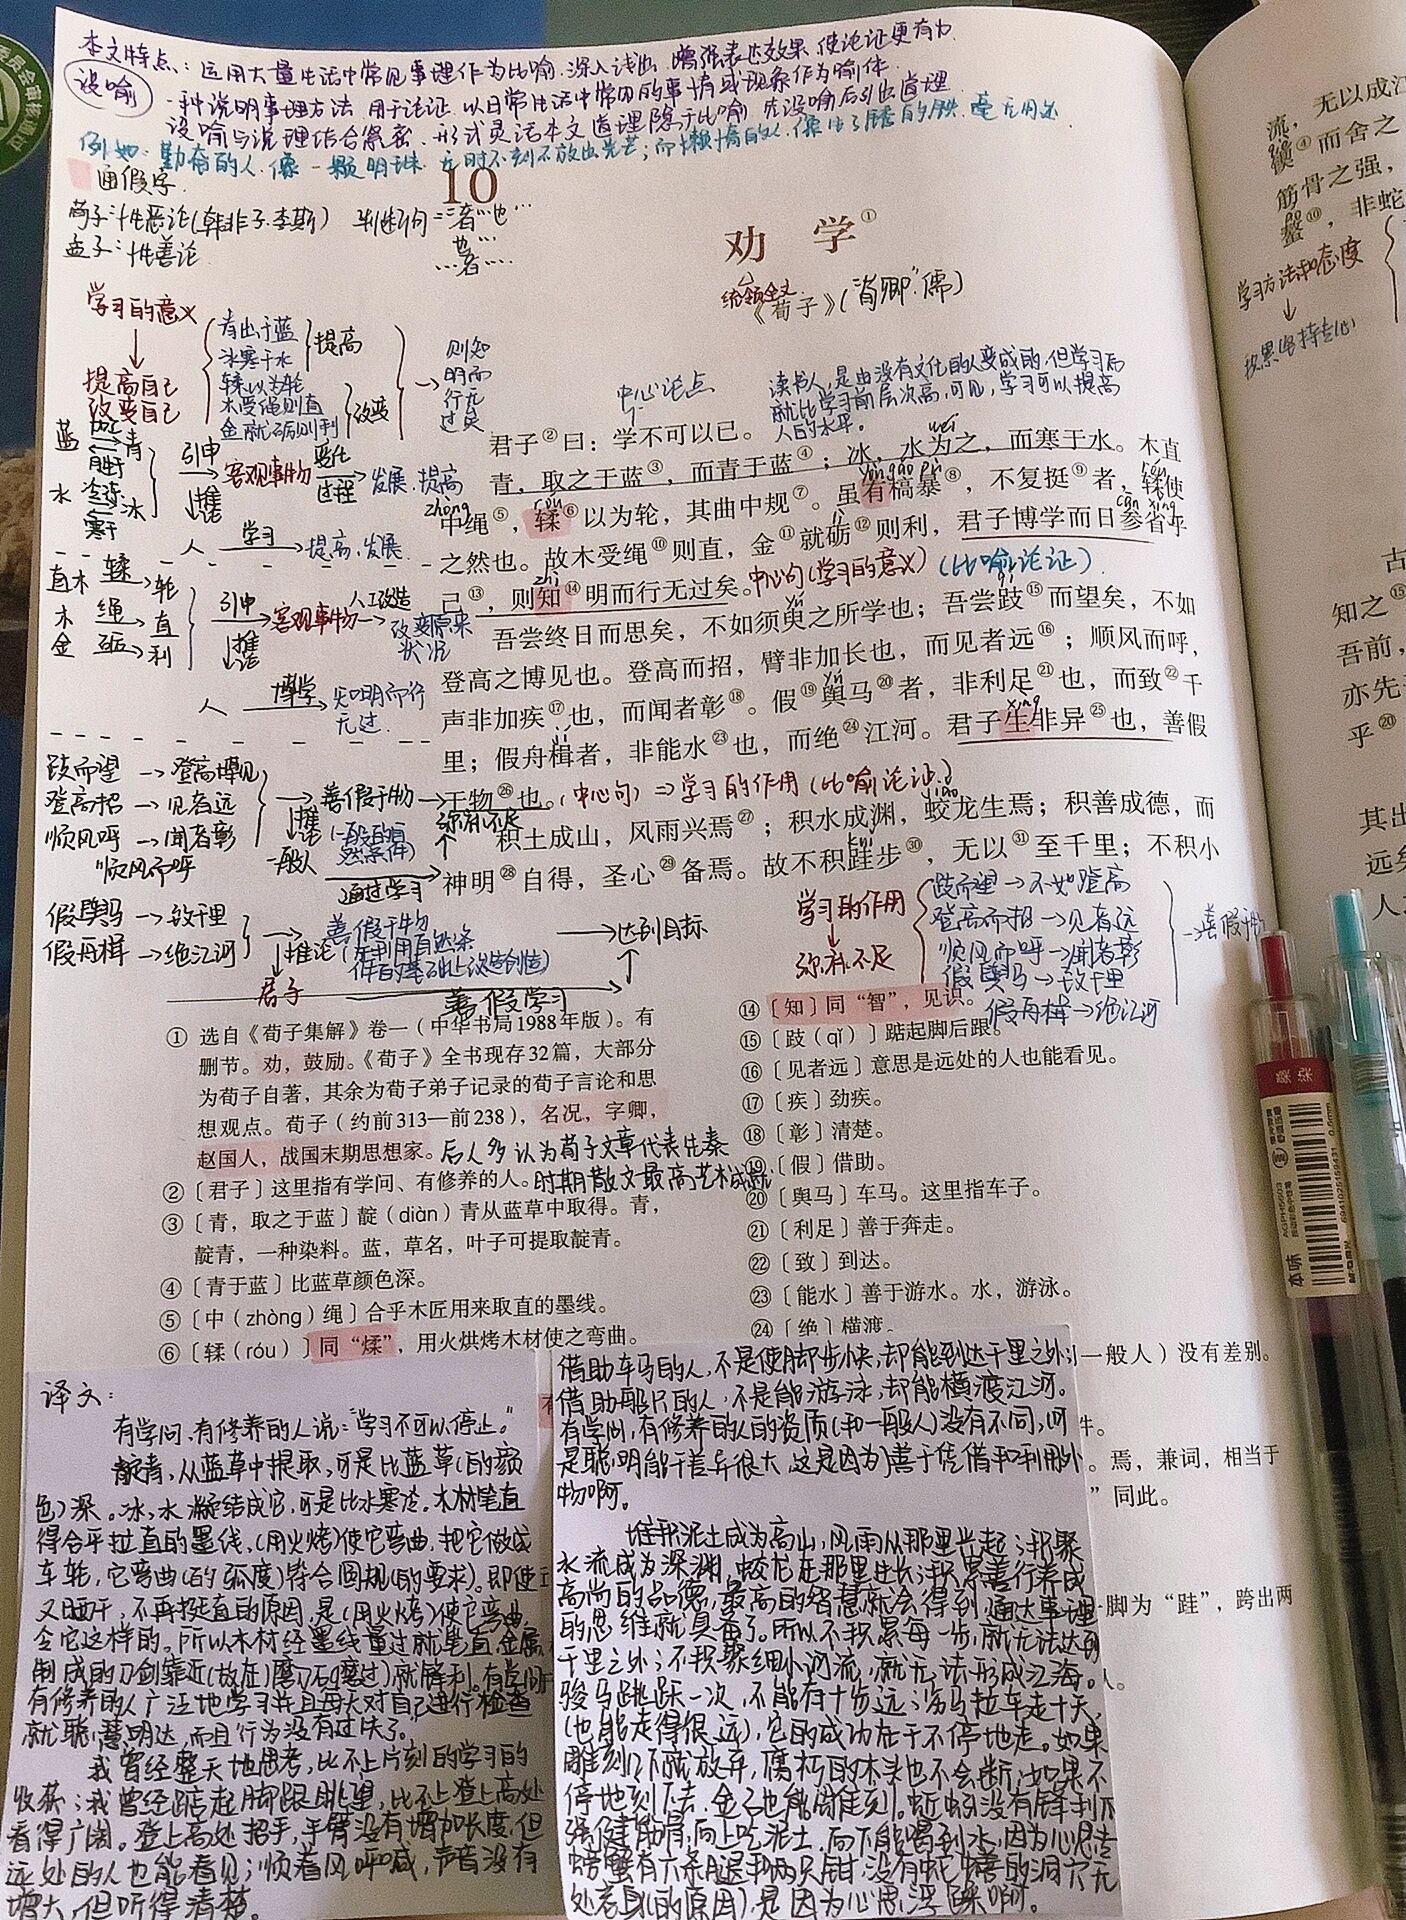 本文特点：运用大量生活中常见事理作为比喻.深入浅出 增强表达效果 使论证更有力
设喻 一种说明事理方法 用于论证 以日常生活中常见的事情或现象作为喻体
设喻与说理结合紧密 形式灵活 本文道理隐于比喻 先设喻后引出道理
例如：勤奋的人.像一颗明珠.无时不刻不放出光芒；而懒惰的人.像生了锈的铁.毫无用处
通假字
10
荀子：性恶论(韩非子.李斯) 判断句="…者…也"
孟子：性善论
也…
…者…
劝 学①
统领全文
《荀子》("荀卿".儒)
学习的意义
提高自己
改变自己
青出于蓝
冰寒于水
提高
輮以为轮
木受绳则直
金就砺则利
改变
则知
明而
行无
过矣
中心论点
读书人,是由没有文化的人变成的,但学习后
就比学习前层次高,可见,学习可以提高
人的水平。
君子②曰：学不可以已。
青，取之于蓝③，而青于蓝④；冰，水为之，而寒于水。木直
中绳⑤，輮⑥以为轮，其曲中规⑦。虽有槁暴⑧，不复挺⑨者，輮使
之然也。故木受绳⑩则直，金⑪就砺⑫则利，君子博学而日参省乎
己⑬，则知⑭明而行无过矣。中心句(学习的意义)(比喻论证)
吾尝终日而思矣，不如须臾之所学也；吾尝跂⑮而望矣，不如
登高之博见也。登高而招，臂非加长也，而见者远⑯；顺风而呼，
声非加疾⑰也，而闻者彰⑱。假⑲舆马⑳者，非利足㉑也，而致㉒千
里；假舟楫者，非能水㉓也，而绝㉔江河。君子生非异㉕也，善假
于物㉖也。(中心句)⇒学习的作用(比喻论证)
积土成山，风雨兴焉㉗；积水成渊，蛟龙生焉；积善成德，而
神明㉘自得，圣心㉙备焉。故不积跬步㉚，无以㉛至千里；不积小
蓝 青
水 冰
寒于
引申
推论
客观事物 变化过程 发展.提高
人 学习 提高.发展
直木 輮 轮
木 绳 直
金 砺 利
引申
推论
客观事物 人工改造 改变原来状况
人 博学 知明而行无过
跂而望→登高博见
登高招→见者远
顺风呼→闻者彰
"顺风而呼
推论
善假于物
一般人
弥补不足
通过学习
假舆马→致千里
假舟楫→绝江河
推论
君子
善假于物
达到目标
善假学习
学习的作用
弥补不足
跂而望→不如登高
登高而招→见者远
顺风而呼→闻者彰
假舆马→致千里
假舟楫→绝江河
善假于物
① 选自《荀子集解》卷一（中华书局1988年版）。有
删节。劝，鼓励。《荀子》全书现存32篇，大部分
为荀子自著，其余为荀子弟子记录的荀子言论和思
想观点。荀子（约前313—前238），名况，字卿，
赵国人，战国末期思想家。后人多认为荀子文章代表先秦
时期散文最高艺术成就
②〔君子〕这里指有学问、有修养的人。
③〔青，取之于蓝〕靛（diàn）青从蓝草中取得。青，
靛青，一种染料。蓝，草名，叶子可提取靛青。
④〔青于蓝〕比蓝草颜色深。
⑤〔中（zhòng）绳〕合乎木匠用来取直的墨线。
⑥〔輮（róu）〕同“煣”，用火烘烤木材使之弯曲。
⑭〔知〕同“智”，见识。
⑮〔跂（qǐ）〕踮起脚后跟。
⑯〔见者远〕意思是远处的人也能看见。
⑰〔疾〕劲疾。
⑱〔彰〕清楚。
⑲〔假〕借助。
⑳〔舆马〕车马。这里指车子。
㉑〔利足〕善于奔走。
㉒〔致〕到达。
㉓〔能水〕善于游水。水，游泳。
㉔〔绝〕横渡。
一般人）没有差别。
件。
。焉，兼词，相当于
”同此。
脚为“跬”，跨出两
译文：
有学问.有修养的人说："学习不可以停止。"
靛青,从蓝草中提取,可是比蓝草(的颜
色)深。冰,水凝结成它,可是比水寒冷。木材笔直
得合乎拉直的墨线,(用火烤)使它弯曲,把它做成
车轮,它弯曲(的弧度)符合圆规(的要求)。即使
又晒干,不再挺直的原因,是(用火烤)使它弯曲
令它这样的。所以木材经墨线量过就笔直,金属
制成的刀剑靠近(放在)磨刀石(磨过)就锋利。有学问
有修养的人广泛地学习并且每天对自己进行检查
就聪慧明达,而且行为没有过失了。
我曾经整天地思考,比不上片刻的学习的
收获；我曾经踮起脚跟眺望,比不上登上高处
看得广阔。登上高处招手,手臂没有增加长度,但
远处的人也能看见；顺着风呼喊,声音没有
增大,但听得清楚。
借助车马的人,不是使脚步快,却能到达千里之外；
借助船只的人,不是能游泳,却能横渡江河。
有学问,有修养的人的资质(和一般人)没有不同,可
是聪明能干差异很大,这是因为)善于凭借和利用外
物啊。
堆积泥土成为高山,风雨从那里兴起；积聚
水流成为深渊,蛟龙在那里生长；积累善行养成
高尚的品德,最高的智慧就会得到,通达事理
的思维就具备了。所以不积累每一步,就无法达到
千里之外；不积聚细小河流,就无法形成江海。
骏马跳跃一次,不能有十步远；驽马拉车走十天,
(也能走得很远),它的成功在于不停地走。如果
雕刻几下就放弃,腐朽的木头也不会断,如果不
停地刻下去,金石也能雕刻。蚯蚓没有锋利爪
强健筋骨,向上吃泥土,向下能喝到水,因为心思专
螃蟹有六条腿和两只钳,没有蛇、蟮的洞穴无
处容身(的原因),是因为心思浮躁啊。
无以成江
流，
而舍之
筋骨之强，
螯⑩，非蛇
学习方法和态度
积累.坚持.专心
古
知之⑮
吾前，
亦先
乎⑳
其出
远矣
人
本味